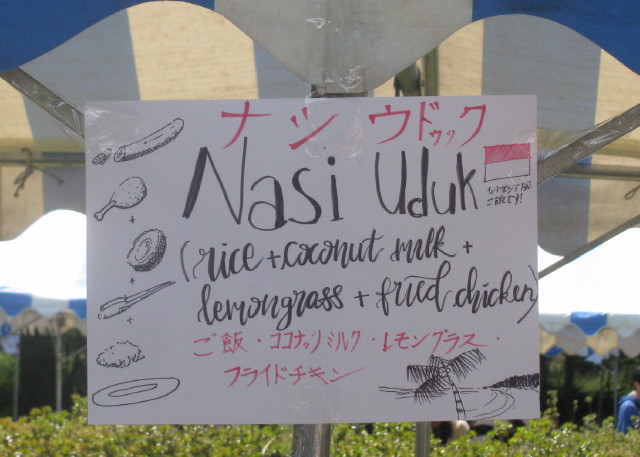 ナシ ウドゥック
Nasi Uduk
インドネシアの
ご飯です!
(rice + coconut milk +
lemongrass + fried chicken)
ご飯・ココナッツミルク・レモングラス・
フライドチキン